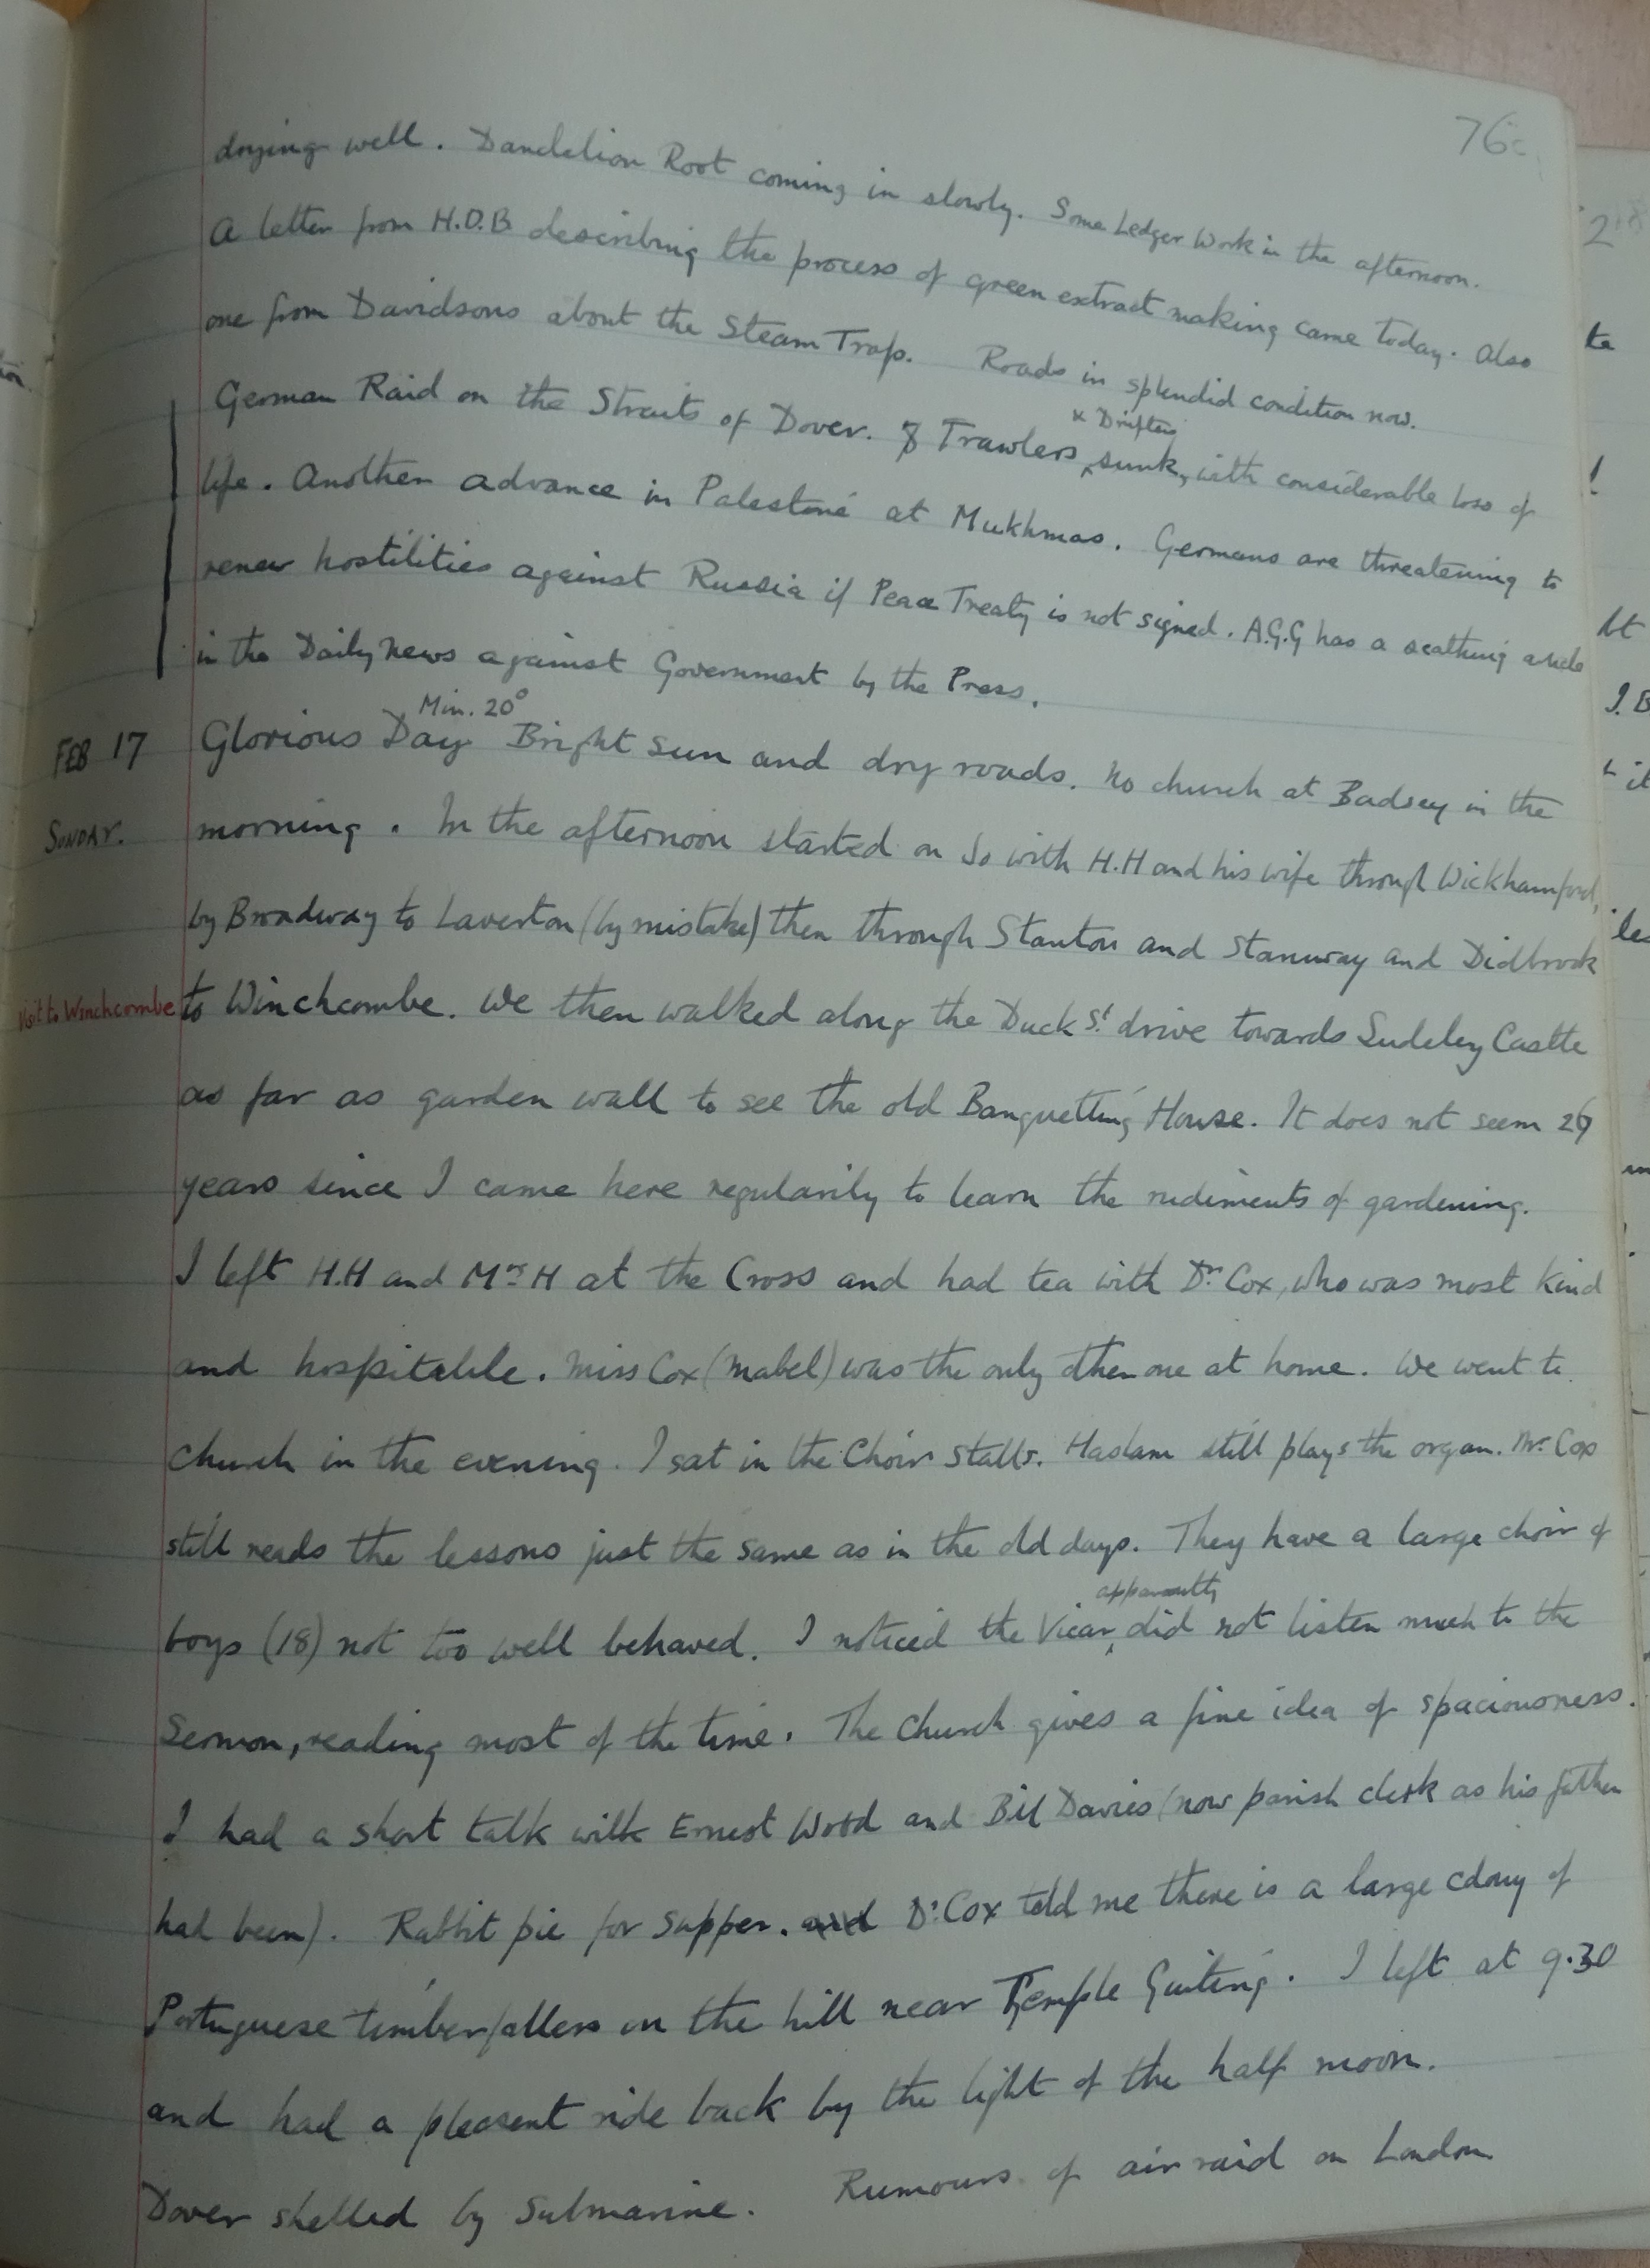 76
drying well. Dandelion Root coming in slowly. Some Ledger Work in the afternoon.
A letter from H.D.B describing the process of green extract making came today. Also
one from Davidsons about the Steam Trap. Roads in splendid condition now.
German Raid on the Straits of Dover. 8 Trawlers & Drifters sunk, with considerable loss of
life. Another advance in Palestine at Mukhmas. Germans are threatening to
renew hostilities against Russia if Peace Treaty is not signed. A.G.G has a scathing article
in the Daily News against Government by the Press.
Min. 20°
FEB 17 Glorious Day Bright sun and dry roads. No church at Badsey in the
SUNDAY. morning. In the afternoon started on Jo with H.H and his wife through Wickhamford,
by Broadway to Laverton (by mistake) then through Stanton and Stanway and Didbrook
Visit to Winchcombe to Winchcombe. We then walked along the Duck St drive towards Sudeley Castle
as far as garden wall to see the old Banquetting House. It does not seem 26
years since I came here regularily to learn the rudiments of gardening.
I left H.H and Mrs H at the Cross and had tea with Dr Cox, who was most kind
and hospitable. Miss Cox (Mabel) was the only other one at home. We went to
church in the evening. I sat in the Choir Stalls. Haslam still plays the organ. Mr Cox
still reads the lessons just the same as in the old days. They have a large choir of
boys (18) not too well behaved. I noticed the Vicar apparently did not listen much to the
Sermon, reading most of the time. The Church gives a fine idea of spaciousness.
I had a short talk with Ernest Wood and Bill Davies (now parish clerk as his father
had been). Rabbit pie for supper. and Dr Cox told me there is a large colony of
Portuguese timberfallers on the hill near Temple Guiting. I left at 9.30
and had a pleasent ride back by the light of the half moon.
Dover shelled by Submarine. Rumours of air raid on London